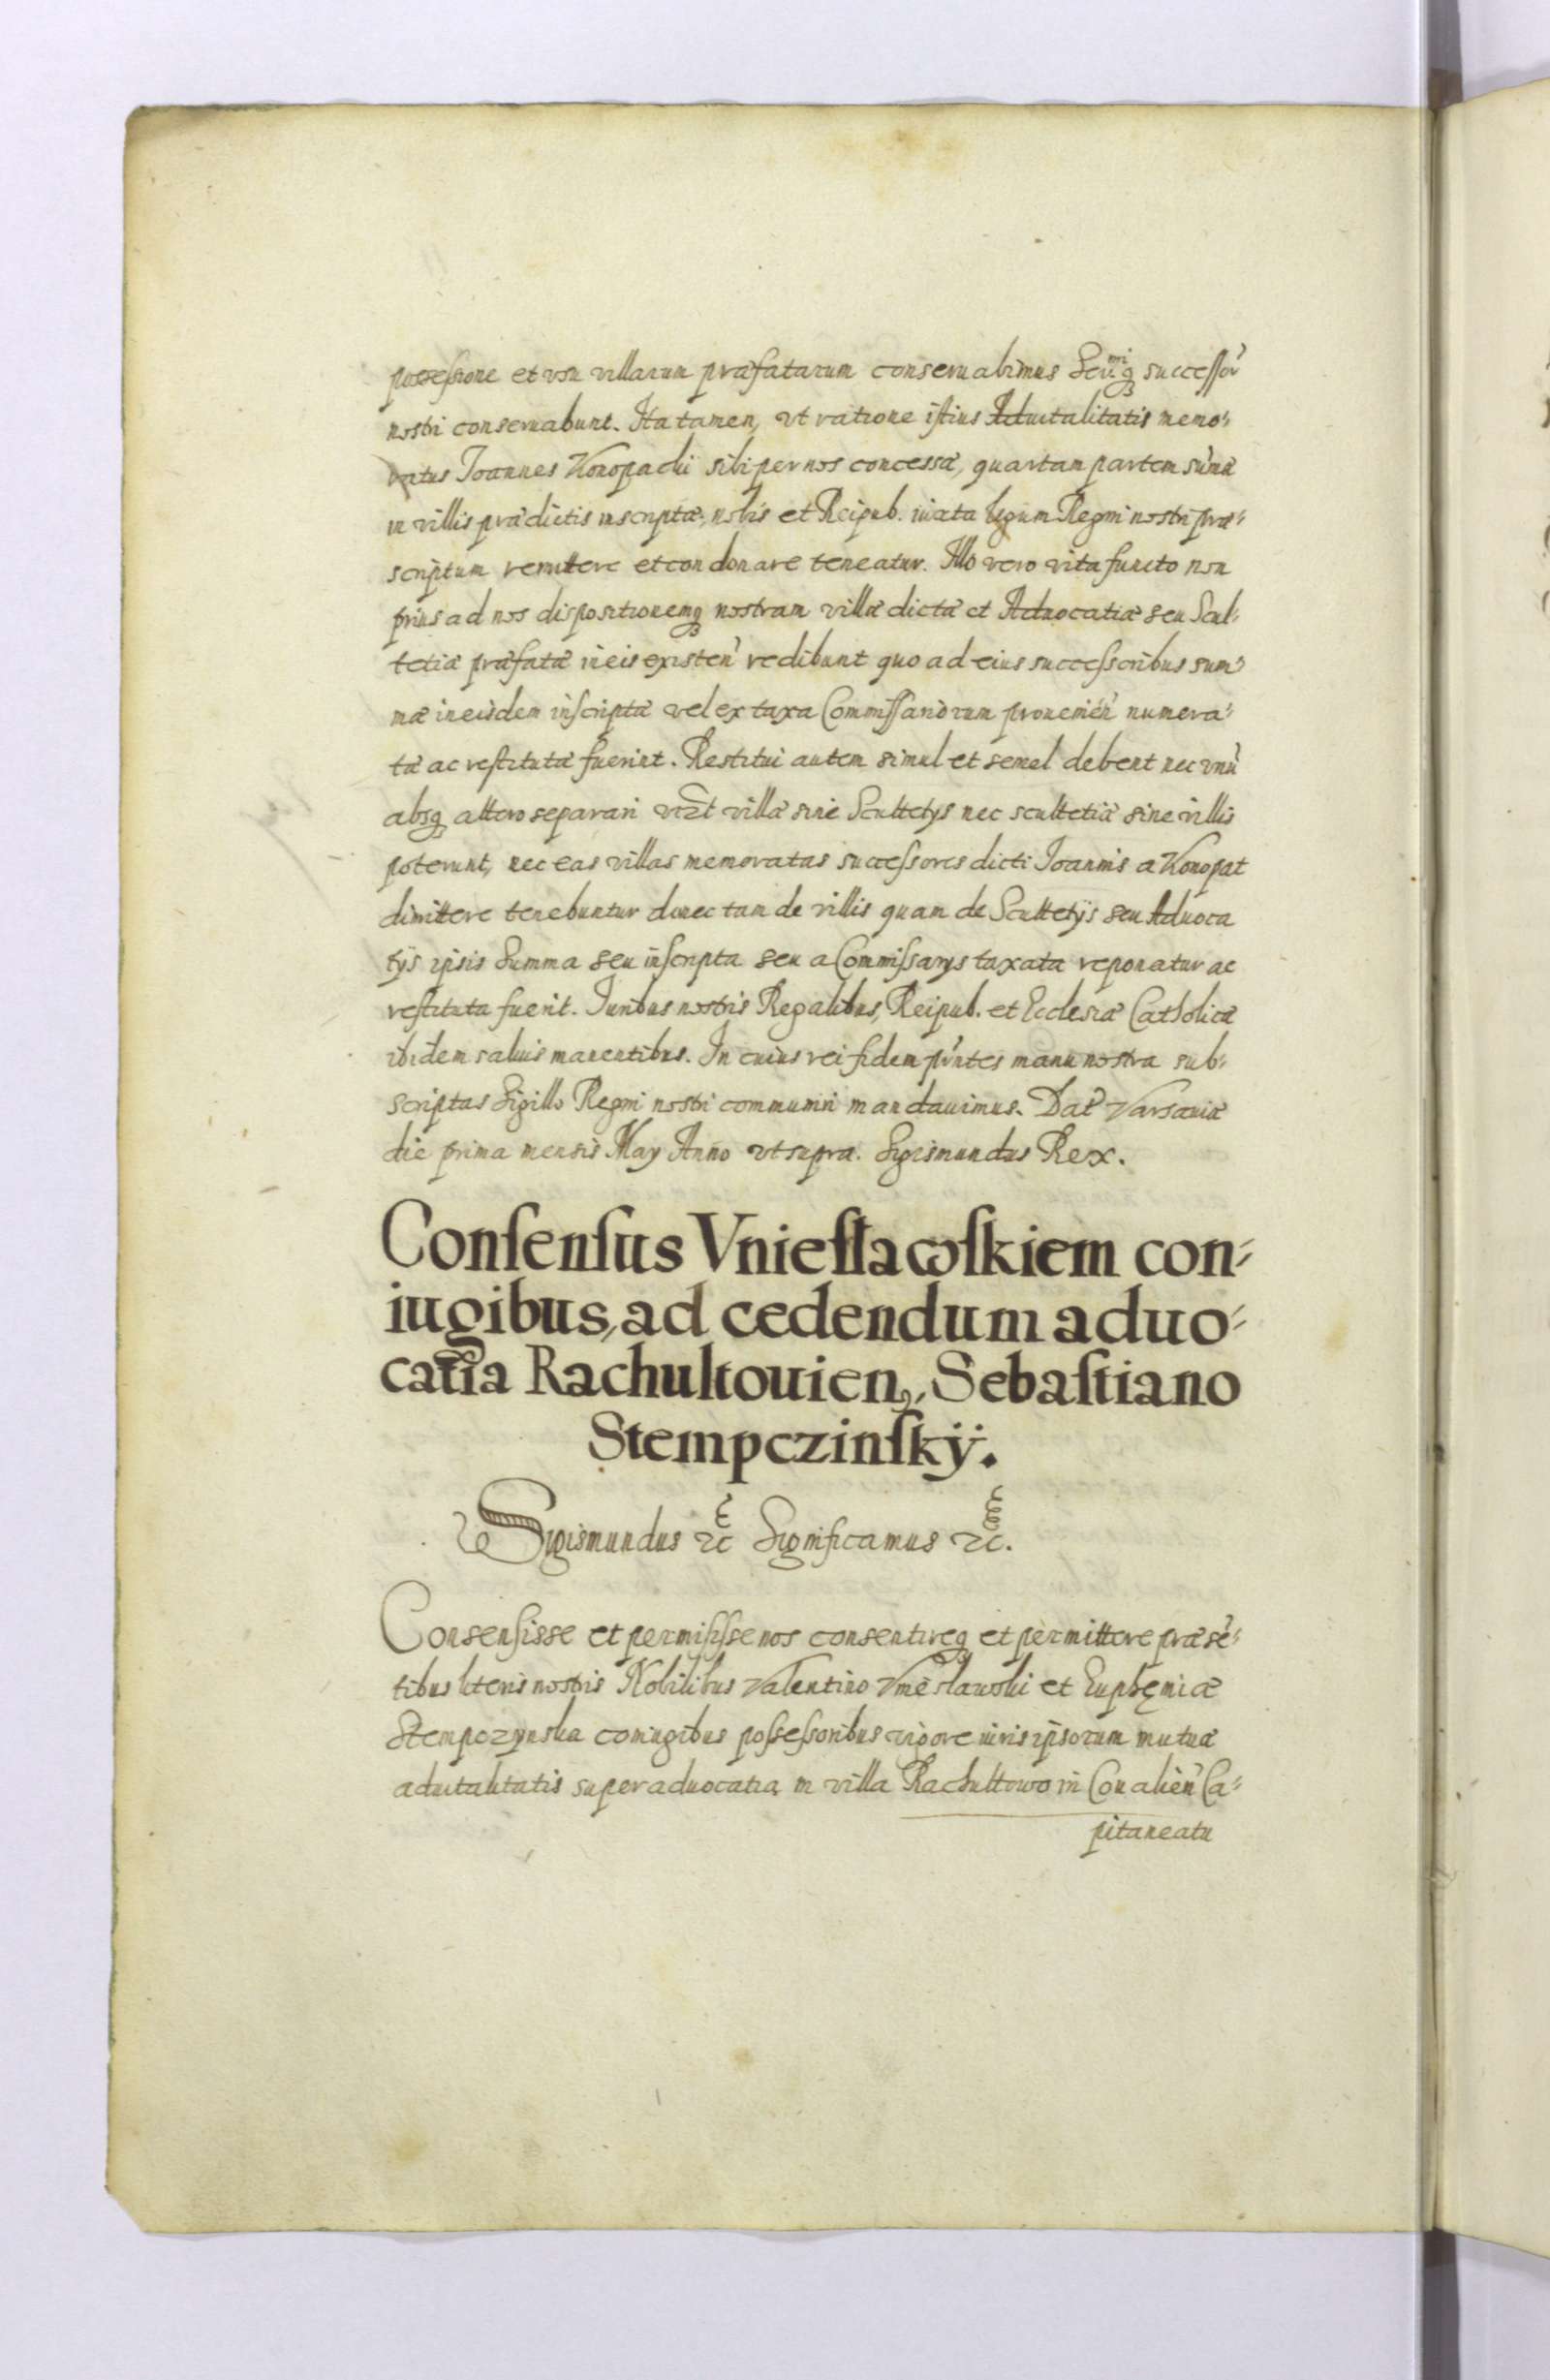 possessione et vsu villarum præfatarum conseruabimus Sermiq successor'
nostri conseruabunt. Ita tamen, vt ratione istius Aduitalitatis memo-
ratus Joannes Konopacki sibi per nos concessæ, quartam partem sum̃æ
in villis prædictis inscriptæ, nobis et Reipub. iuxta legum Regni nostri præ-
scriptum remittere et condonare teneatur. Illo vero vita functo non
prius ad nos dispositionemq nostram villæ dictæ et Aduocatiæ seu Scul-
tetiæ præfatæ in eis existen' redibunt quo ad eius successoribus sum-
mæ in eisdem inscriptæ vel ex taxa Commissariorum prouenien' numera-
tæ ac restitutæ fuerint. Restitui autem simul et semel debent nec vnũ
absq altero separari vizt villæ sine Scultetys nec scultetiæ sine villis
poterunt, nec eas villas memoratas successores dicti Joannis a Konopat
dimittere tenebuntur donec tam de villis quam de Scultetÿs seu Aduoca
tÿs ipsis Summa seu inscripta seu a Commissarys taxata reponatur ac
restituta fuerit. Iuribus nostris Regalibus, Reipub. et Ecclesiæ Catholicæ
ibidem saluis manentibus. In cuius rei fidem pñtes manu nostra sub-
scriptas Sigillo Regni nostri communiri mandauimus. Dat' Varsauiæ
die prima mensis May Anno vt supra. Sigismundus Rex.
Consensus Vniesławskiem con-
iugibus, ad cedendum aduo-
catia Rachultouien, Sebastiano
Stempczinskÿ.
Sigismundus &c Significamus &c.
Consensisse et permisisse nos consentireq et permittere præsē-
tibus literis nostris Nobilibus Valentino Vniesławski et Euphęmiæ
Stempczynska coniugibus possessoribus vigore iuris ipsorum mutuæ
aduitalitatis super aduocatia in villa Rachultowo in Coualien' Ca-
pitaneatu